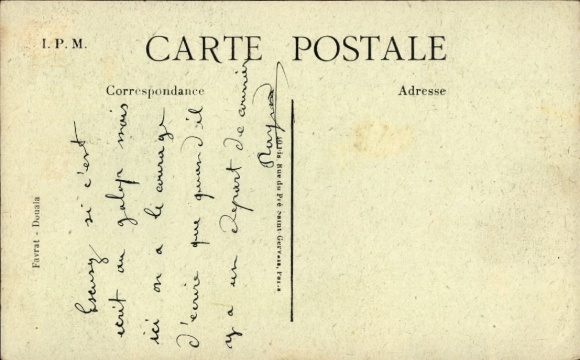 I. P. M.
CARTE POSTALE
Correspondance
Adresse
Excusez si c'est
écrit au galop mais
ici on a le courage
d'écrire que quand il
y a un départ de courrier
Favrat - Douala
Rue du Pré Saint Gervais, Paris